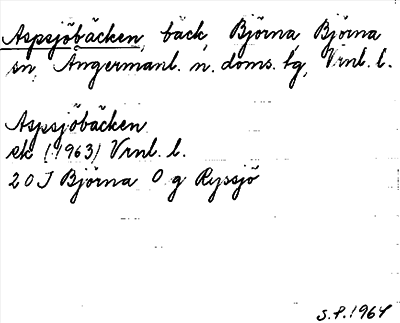 Aspsjöbäcken, bäck, Björna, Björna
sn, Ångermanl. n. doms. lg, Vrnl. l.
Aspsjöbäcken
ek (1963) Vrnl. l.
20J Björna O g Ryssjö
S.P. 1964